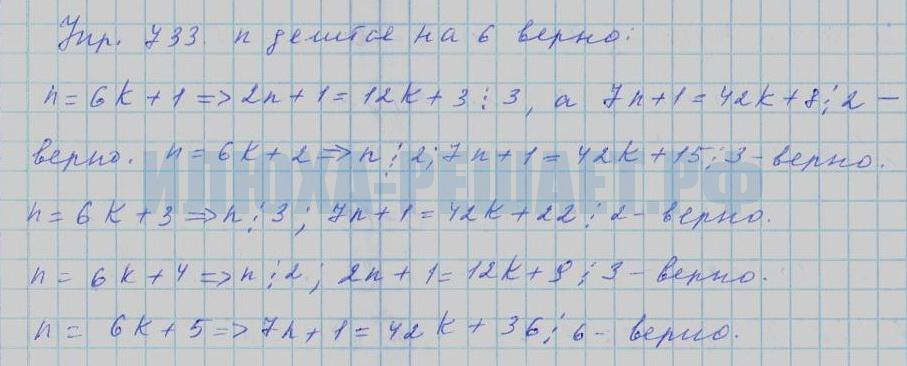 Упр. 733. n делится на 6 верно:
n = 6k + 1 => 2n + 1 = 12k + 3 ⋮ 3, а 7n + 1 = 42k + 8 ⋮ 2 –
верно. n = 6k + 2 => n ⋮ 2; 7n + 1 = 42k + 15 ⋮ 3 – верно.
ИДЮХА-РЕШАЕТ.РФ
n = 6k + 3 => n ⋮ 3; 7n + 1 = 42k + 22 ⋮ 2 – верно.
n = 6k + 4 => n ⋮ 2; 2n + 1 = 12k + 9 ⋮ 3 – верно.
n = 6k + 5 => 7n + 1 = 42k + 36 ⋮ 6 – верно.